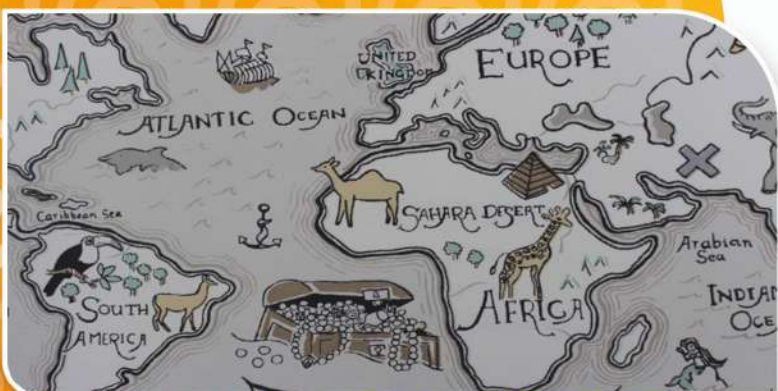 UNITED
KINGDOM
EUROPE
ATLANTIC OCEAN
Caribbean Sea
SAHARA DESERT
Arabian
Sea
SOUTH
AMERICA
AFRICA
INDIAN
OCE